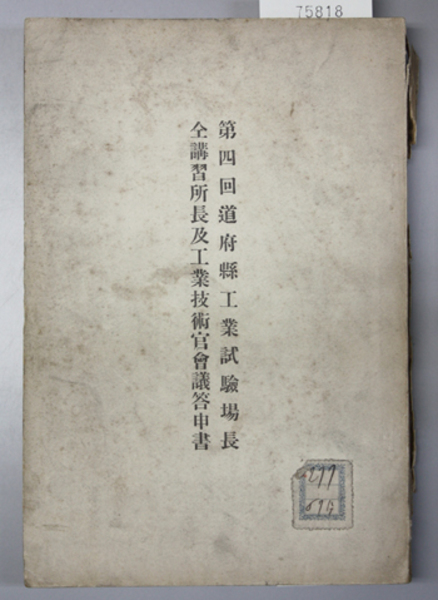 75818
第四回道府縣工業試驗場長
仝講習所長及工業技術官會議答申書
277